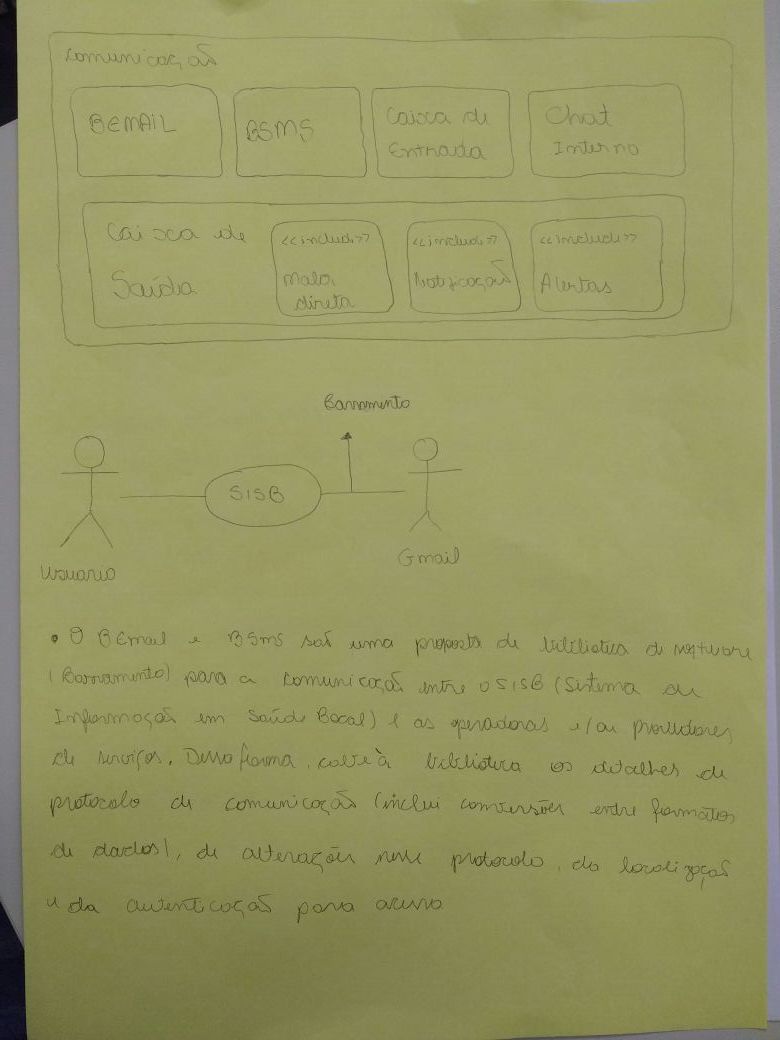 Comunicação
BEMAIL
BSMS
Caixa de
Entrada
Chat
Interno
Caixa de
Saída
<<include>>
Mala
direta
<<include>>
Notificação
<<include>>
Alertas
Barramento
SISB
Usuario
Gmail
• O BEmail e BSms são uma proposta de biblioteca de software
(Barramento) para a comunicação entre o SISB (Sistema de
Informação em Saúde Bocal) e as operadoras e/ou provedores
de serviços. Dessa forma, cabe à biblioteca os detalhes de
protocolo de comunicação (inclui conversões entre formatos
de dados), de alterações nesse protocolo, da localização
e da autenticação para acesso